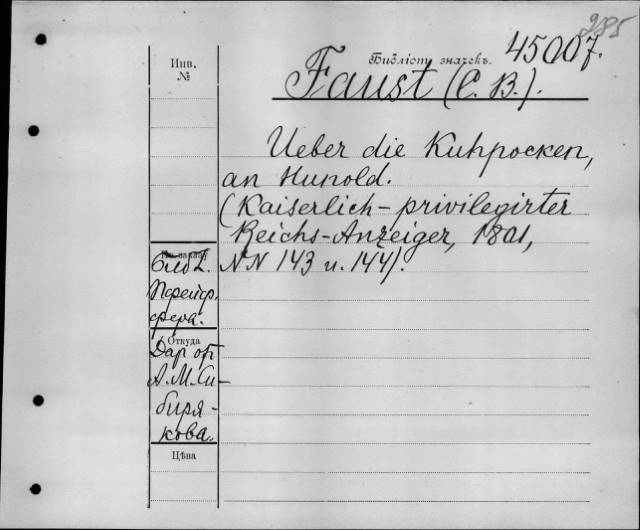 2185
Библіот. значекъ. 45007.
Инв.
№
Faust (C. B.).
Ueber die Kuhpocken,
an Hunold.
(Kaiserlich-privilegirter
Reichs-Anzeiger, 1801,
NN 143 u. 144).
Библ.
Пфейф-
фера.
Откуда
Дар от
А. М. Си-
биря-
кова.
Цѣна